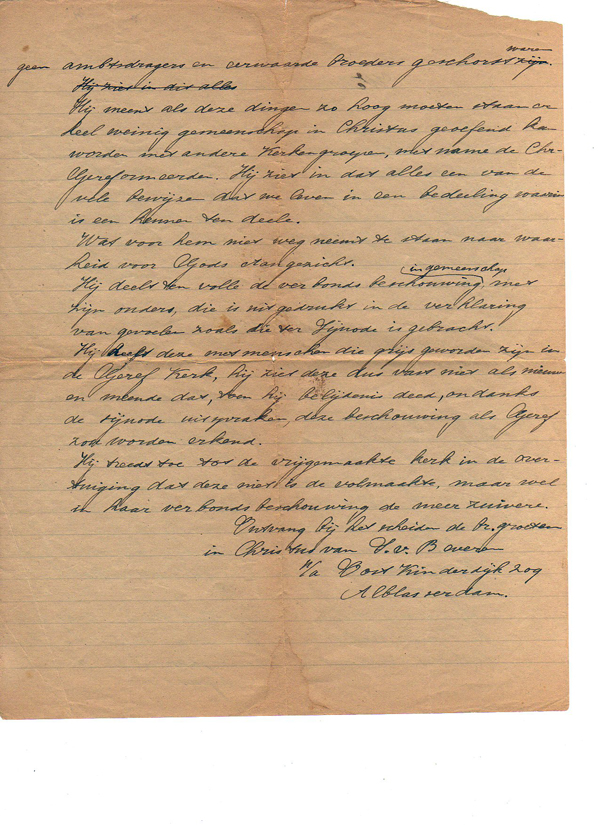 waren
geen ambtsdragers en eerwaarde broeders geschorst zijn.
Hij ziet in dit alles
Hij meent als deze dingen zo hoog moeten staan er
heel weinig gemeenschap in Christus geoefend kan
worden met andere Kerkengroepen, met name de Chr-
Gereformeerden. Hij ziet in dat alles een van de
vele bewijzen dat we leven in een bedeeling waarin
is een kennen ten deele.
Wat voor hem niet weg neemt te staan naar waar-
heid voor Gods Aangezicht.
in gemeenschap
Hij deelt ten volle de verbonds beschouwing met
zijn ouders, die is uitgedrukt in de verklaring
van gevoelen zoals die ter Sijnode is gebracht.
Hij deelt deze met menschen die grijs geworden zijn in
de Geref Kerk, hij ziet deze dus vast niet als nieuw
en meende dat, toen hij belijdenis deed, ondanks
de sijnode uitspraken, deze beschouwing als Geref
zou worden erkend.
Hij treedt toe tot de vrijgemaakte kerk in de over-
tuiging dat deze niet is de volmaakte, maar wel
in haar verbonds beschouwing de meer zuivere.
Ontvang bij het scheiden de br. groeten
in Christus van S. v. Beveren
p/a Oost Kinderdijk 209
Alblasserdam.